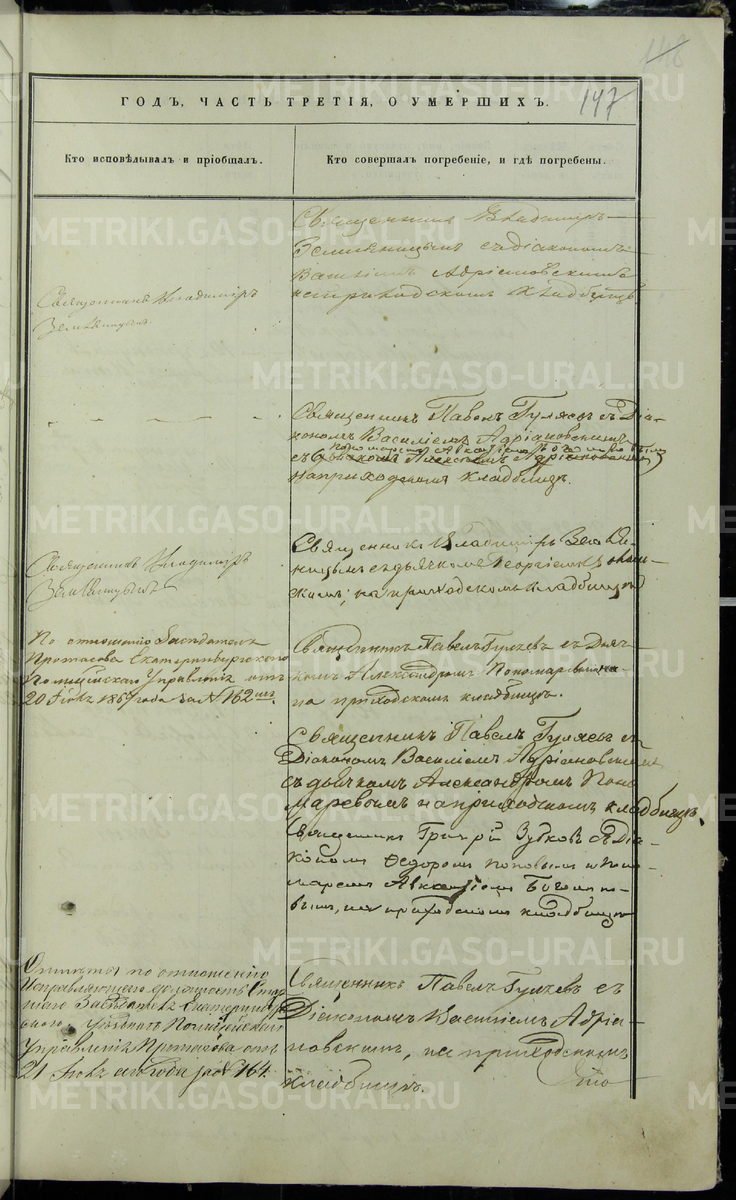 148
147
ГОДЪ, ЧАСТЬ ТРЕТІЯ, О УМЕРШИХЪ.
Кто исповѣдывалъ и пріобщалъ.
Кто совершалъ погребеніе, и гдѣ погребены.
Священникъ Владиміръ
Земляницынъ съ діакономъ
Василіемъ Адріановскимъ
на приходскомъ кладбищѣ.
Священникъ Владиміръ
Земляницынъ
Священникъ Павелъ Гуляевъ съ Діа-
кономъ Василіемъ Адріановскимъ
пономаремъ
съ дьячкомъ
на приходскомъ кладбищѣ.
Священникъ Владиміръ
Земляницынъ
Священникъ Владиміръ Земля-
ницынъ съ дьячкомъ Георгіемъ
скимъ, на приходскомъ кладбищѣ
По отношенію Засѣдателя
Протасова Екатеринбургскаго
Полицейскаго Управленія отъ
20 Іюля 1867 года за № 162мъ.
Священникъ Павелъ Гуляевъ съ Дьяч-
комъ Александромъ Пономаревымъ
на приходскомъ кладбищѣ.
Священникъ Павелъ Гуляевъ съ
Діакономъ Василіемъ Адріановскимъ
съ дьячкомъ Александромъ Поно
маревымъ на приходскомъ кладбищѣ.
Священникъ Григорій Зубковъ съ Діа-
кономъ Федоромъ Поповымъ и поно-
маремъ
вымъ, на приходскомъ кладбищѣ
по отношенію
Исправляющаго должность
Засѣдателя Екатеринбург
скаго Уѣзднаго Полицейскаго
Управленія Протасова отъ
21 Іюля сего года за № 164.
Священникъ Павелъ Гуляевъ съ
Діакономъ Василіемъ Адріа-
новскимъ, на приходскомъ
кладбищѣ.
METRIKI.GASO-URAL.RU